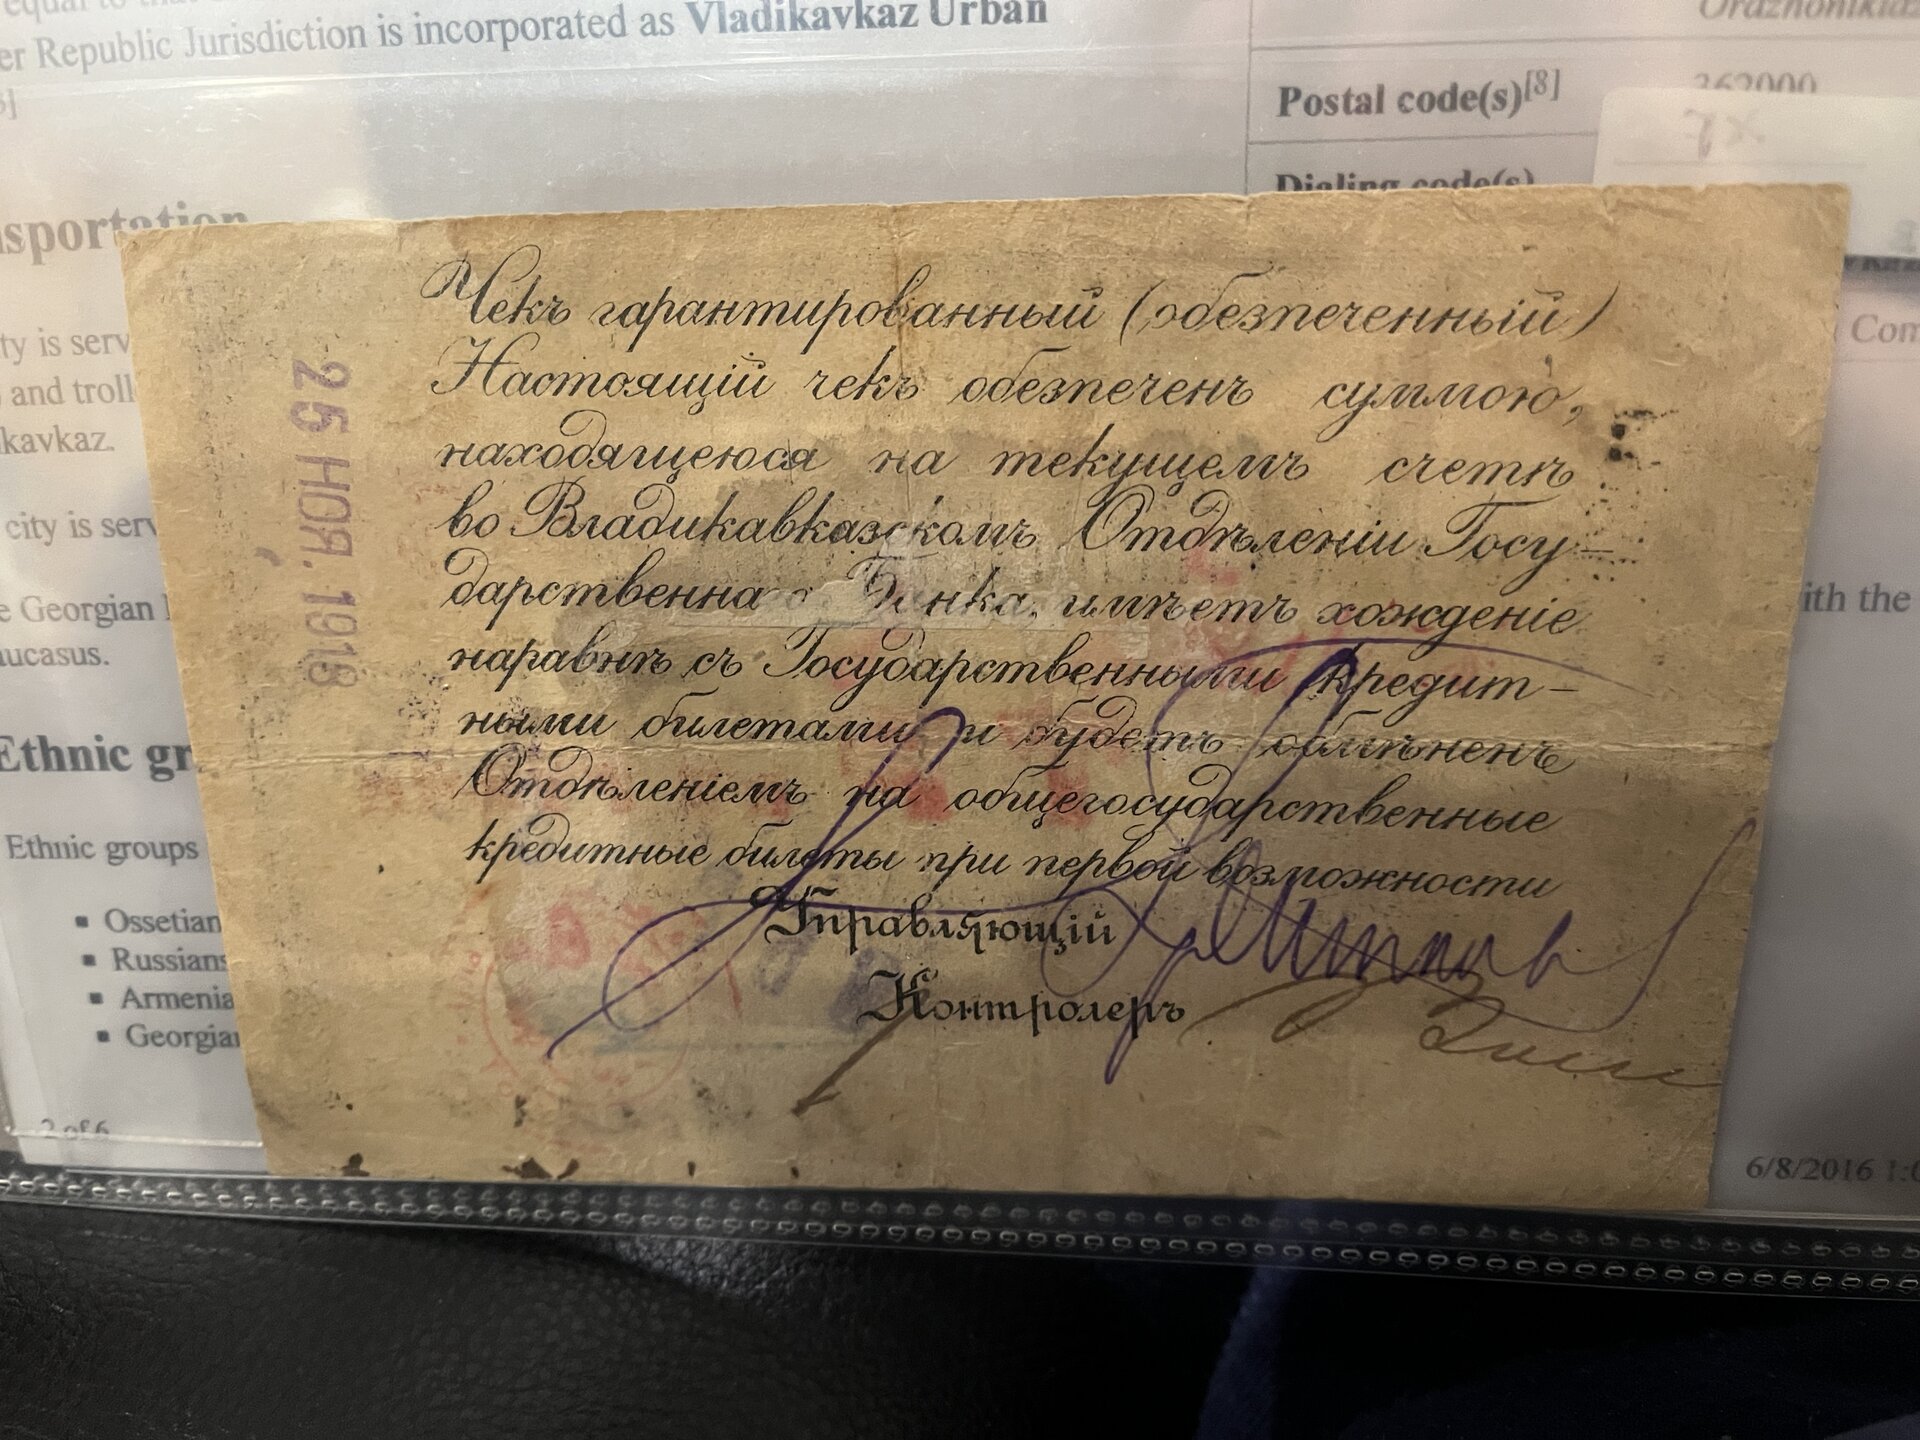 equal to that
er Republic Jurisdiction is incorporated as Vladikavkaz Urban
3]
nsportation
ty is serv
and troll
ikavkaz.
city is serv
e Georgian
aucasus.
Ethnic gr
Ethnic groups
▪ Ossetian
▪ Russians
▪ Armenia
▪ Georgian
2 of 6
Ordzhonikidz
Postal code(s)[8] 362000
Dialing code(s)
Com
ith the
6/8/2016 1:0
25 НОЯ. 1918
Чекъ гарантированный (обезпеченный)
Настоящій чекъ обезпеченъ суммою,
находящеюся на текущемъ счетѣ
во Владикавказскомъ Отдѣленіи Госу-
дарственна о Банка, имѣетъ хожденіе
наравнѣ съ Государственными кредит-
ными билетами и будетъ обмѣненъ
Отдѣленіемъ на общегосударственные
кредитные билеты при первой возможности
Управляющій
Контролеръ